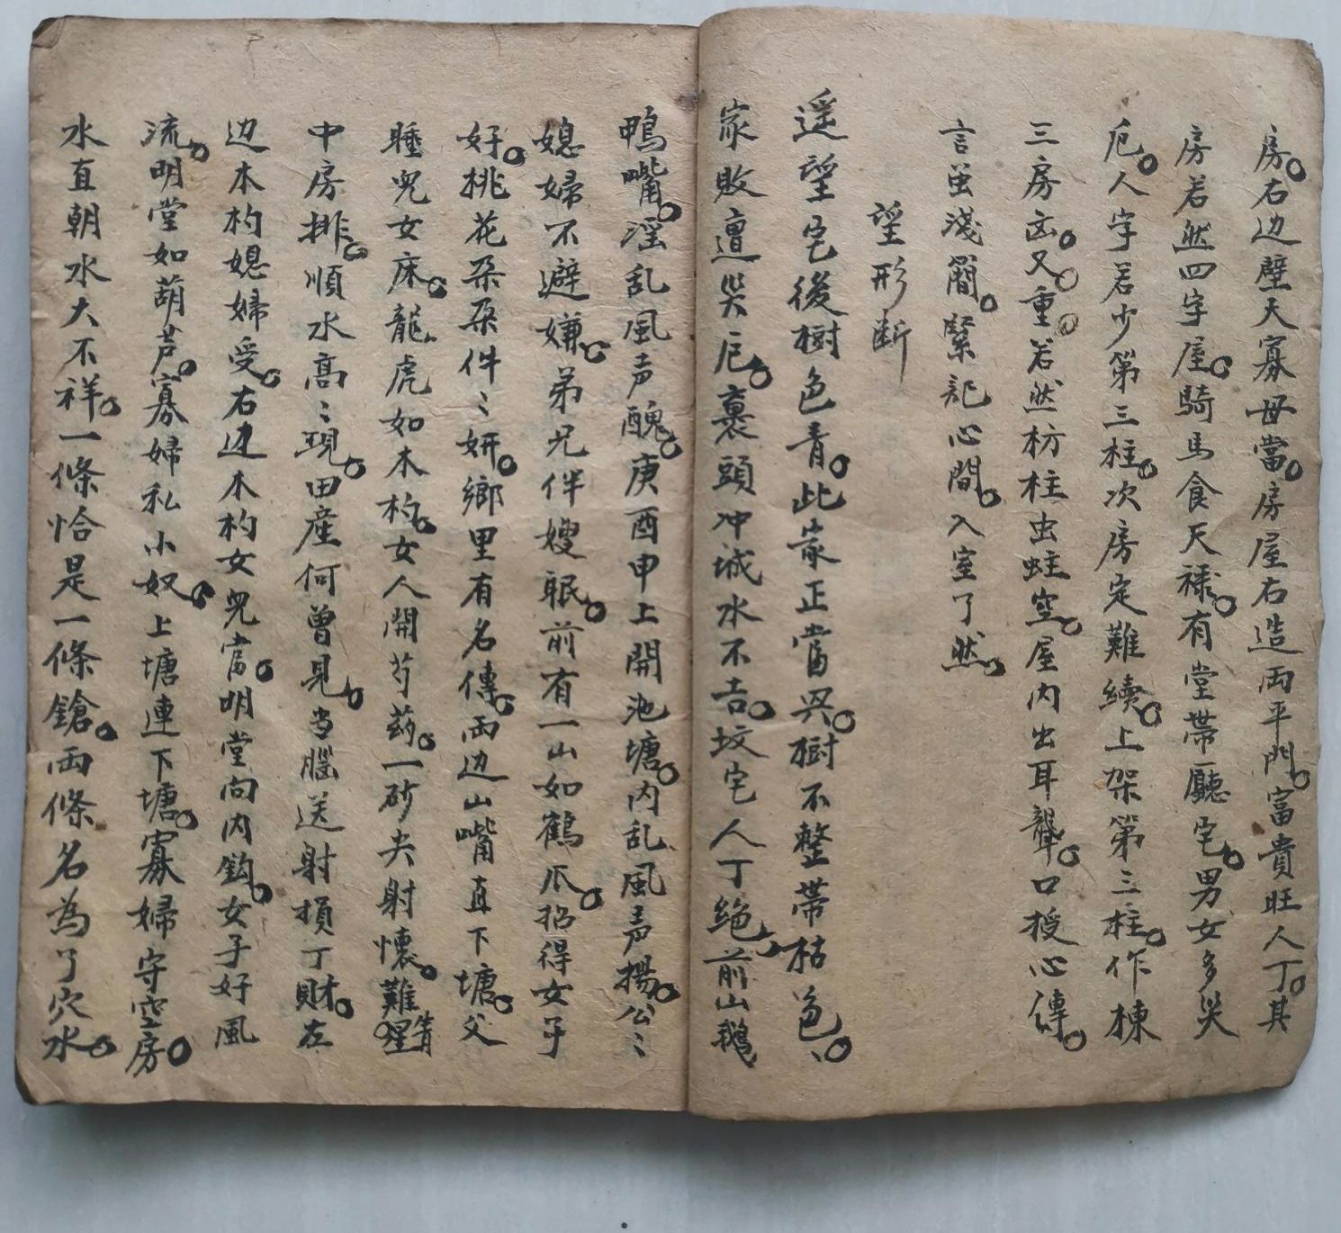 房。右边壁天寡母當。房屋右造両平門。富貴旺人丁。其
房若然四字屋。騎馬食天禄。有堂帶廳宅。男女多災
厄。人字若少第三柱。次房定難續。上架第三柱。作棟
三房凶。又。重。若然枋柱虫蛀空。屋内出耳聾。口授心傳。
言虽淺簡。緊記心間。入室了然。
望形断
遥望宅後樹色青。此家正當兴。樹不整帶枯色、。
家敗遭災厄。裹頭冲城水不吉。坟宅人丁絶。前山鵝
鴨嘴。淫乱風声醜。庚酉申上開池塘。内乱風声揚。公〻
媳婦不避嫌。弟兄伴嫂眠。前有一山如鶴爪。招得女子
好。桃花朶朶件〻妍。鄉里有名傳。両边山嘴直下塘。父
睡兒女床。龍虎如木杓。女人開芍葯。一砂尖射懷。難猩背
中房排。順水高〻現。田産何曾見。当腦送射損丁財。左
边木杓媳婦受。右边木杓女兒當。明堂向内鈎。女子好風
流。明堂如葫芦。寡婦私小奴。上塘連下塘。寡婦守空房。
水直朝水大不祥。一條恰是一條鎗。両條名為了穴水。